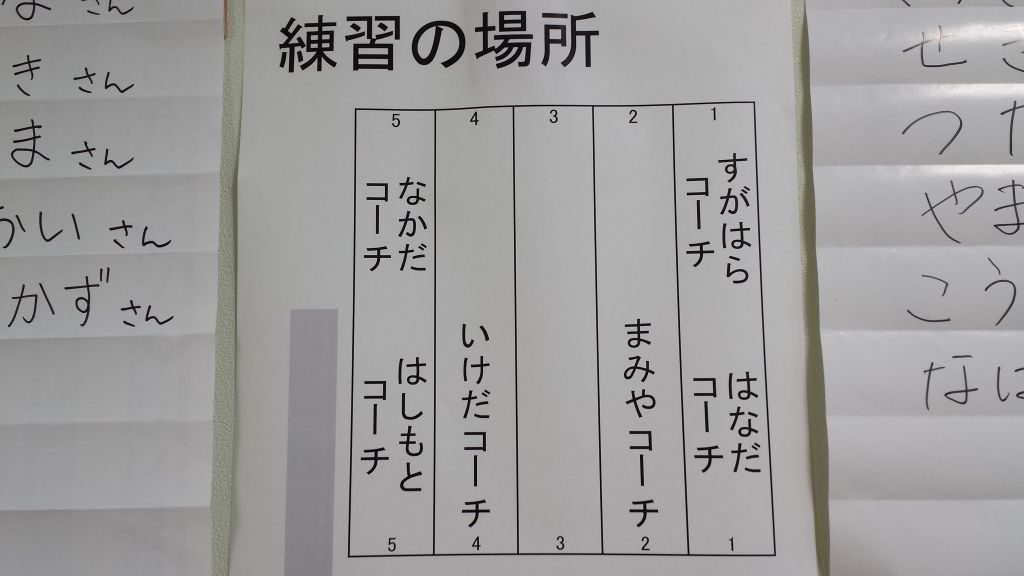 練習の場所
5 4 3 2 1
すがはら
コーチ
はなだ
コーチ
まみやコーチ
いけだコーチ
なかだ
コーチ
はしもと
コーチ
5 4 3 2 1
さん
きさん
まさん
かいさん
かずさん
せ
つ
やま
こう
な